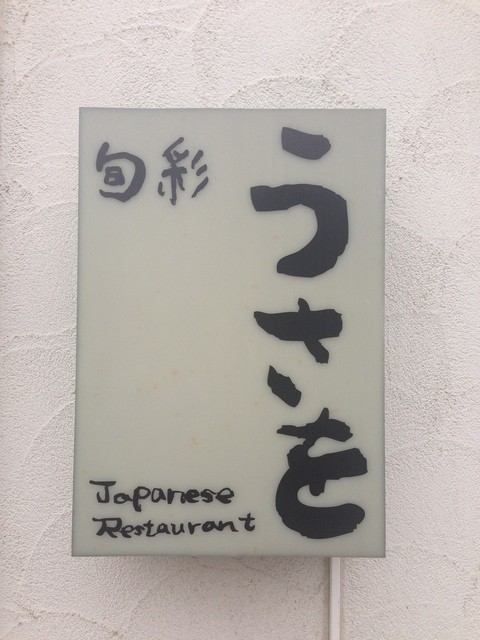 旬彩
うさを
Japanese
Restaurant